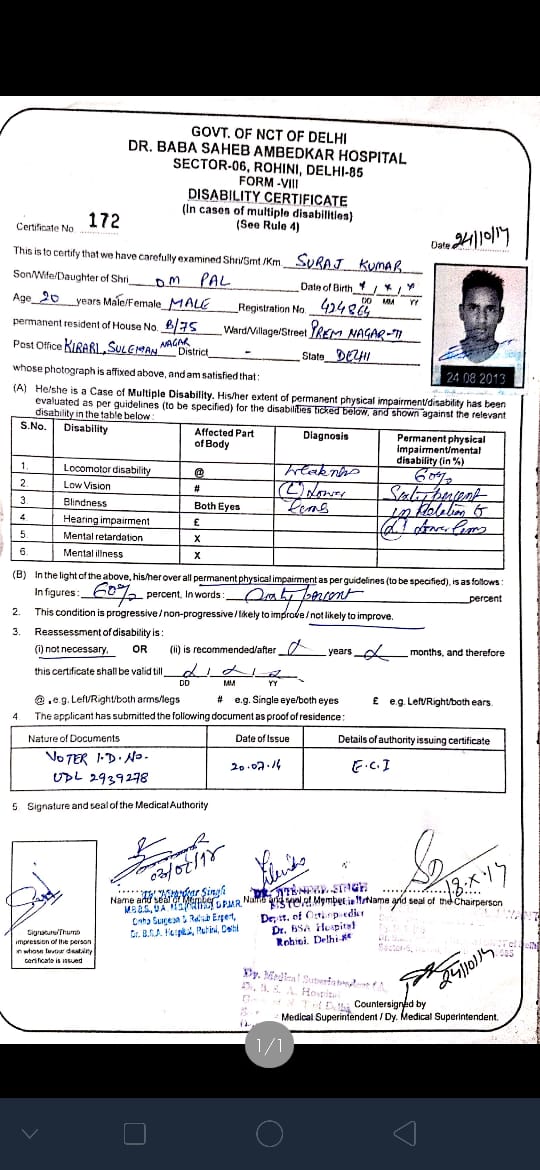 GOVT. OF NCT OF DELHI
DR. BABA SAHEB AMBEDKAR HOSPITAL
SECTOR-06, ROHINI, DELHI-85
FORM -VIII
DISABILITY CERTIFICATE
(In cases of multiple disabilities)
(See Rule 4)
Certificate No 172
Date 24/10/17
This is to certify that we have carefully examined Shri/Smt./Km. SURAJ KUMAR
Son/Wife/Daughter of Shri OM PAL Date of Birth
DD MM YY
Age 20 years Male/Female MALE Registration No. 424864
permanent resident of House No. B/75 Ward/Village/Street PREM NAGAR-II
Post Office KIRARI, SULEMAN NAGAR District - State DELHI
whose photograph is affixed above, and am satisfied that :
24 08 2013
(A) He/she is a Case of Multiple Disability. His/her extent of permanent physical impairment/disability has been
evaluated as per guidelines (to be specified) for the disabilities ticked below, and shown against the relevant
disability in the table below :
S.No. Disability Affected Part of Body Diagnosis Permanent physical impairment/mental disability (in %)
1. Locomotor disability @ Weakness 60%
2. Low Vision # (L) Lower Sixty percent
3. Blindness Both Eyes Limb in Relation to
4. Hearing impairment £ (L) Lower limb
5. Mental retardation X
6. Mental illness X
(B) In the light of the above, his/her over all permanent physical impairment as per guidelines (to be specified), is as follows :
In figures : 60% percent, In words : Sixty percent percent
2. This condition is progressive / non-progressive / likely to improve / not likely to improve.
3. Reassessment of disability is :
(i) not necessary, OR (ii) is recommended/after years months, and therefore
this certificate shall be valid till
DD MM YY
@ .e.g. Left/Right/both arms/legs # e.g. Single eye/both eyes £ e.g. Left/Right/both ears.
4 The applicant has submitted the following document as proof of residence :
Nature of Documents Date of Issue Details of authority issuing certificate
VOTER I.D. No. 20.07.14 E.C.I
UDL 2939278
5 Signature and seal of the Medical Authority
18.X.17
Name and seal of Member Name and seal of Member Name and seal of the Chairperson
Deptt. of Orthopaedics
Dr. BSA Hospital
Rohini, Delhi
Signature/Thump
impression of the person
in whose favour disability
certificate is issued
24/10/17
Dy. Medical Superintendent
Countersigned by
Medical Superintendent / Dy. Medical Superintendent.
1/1